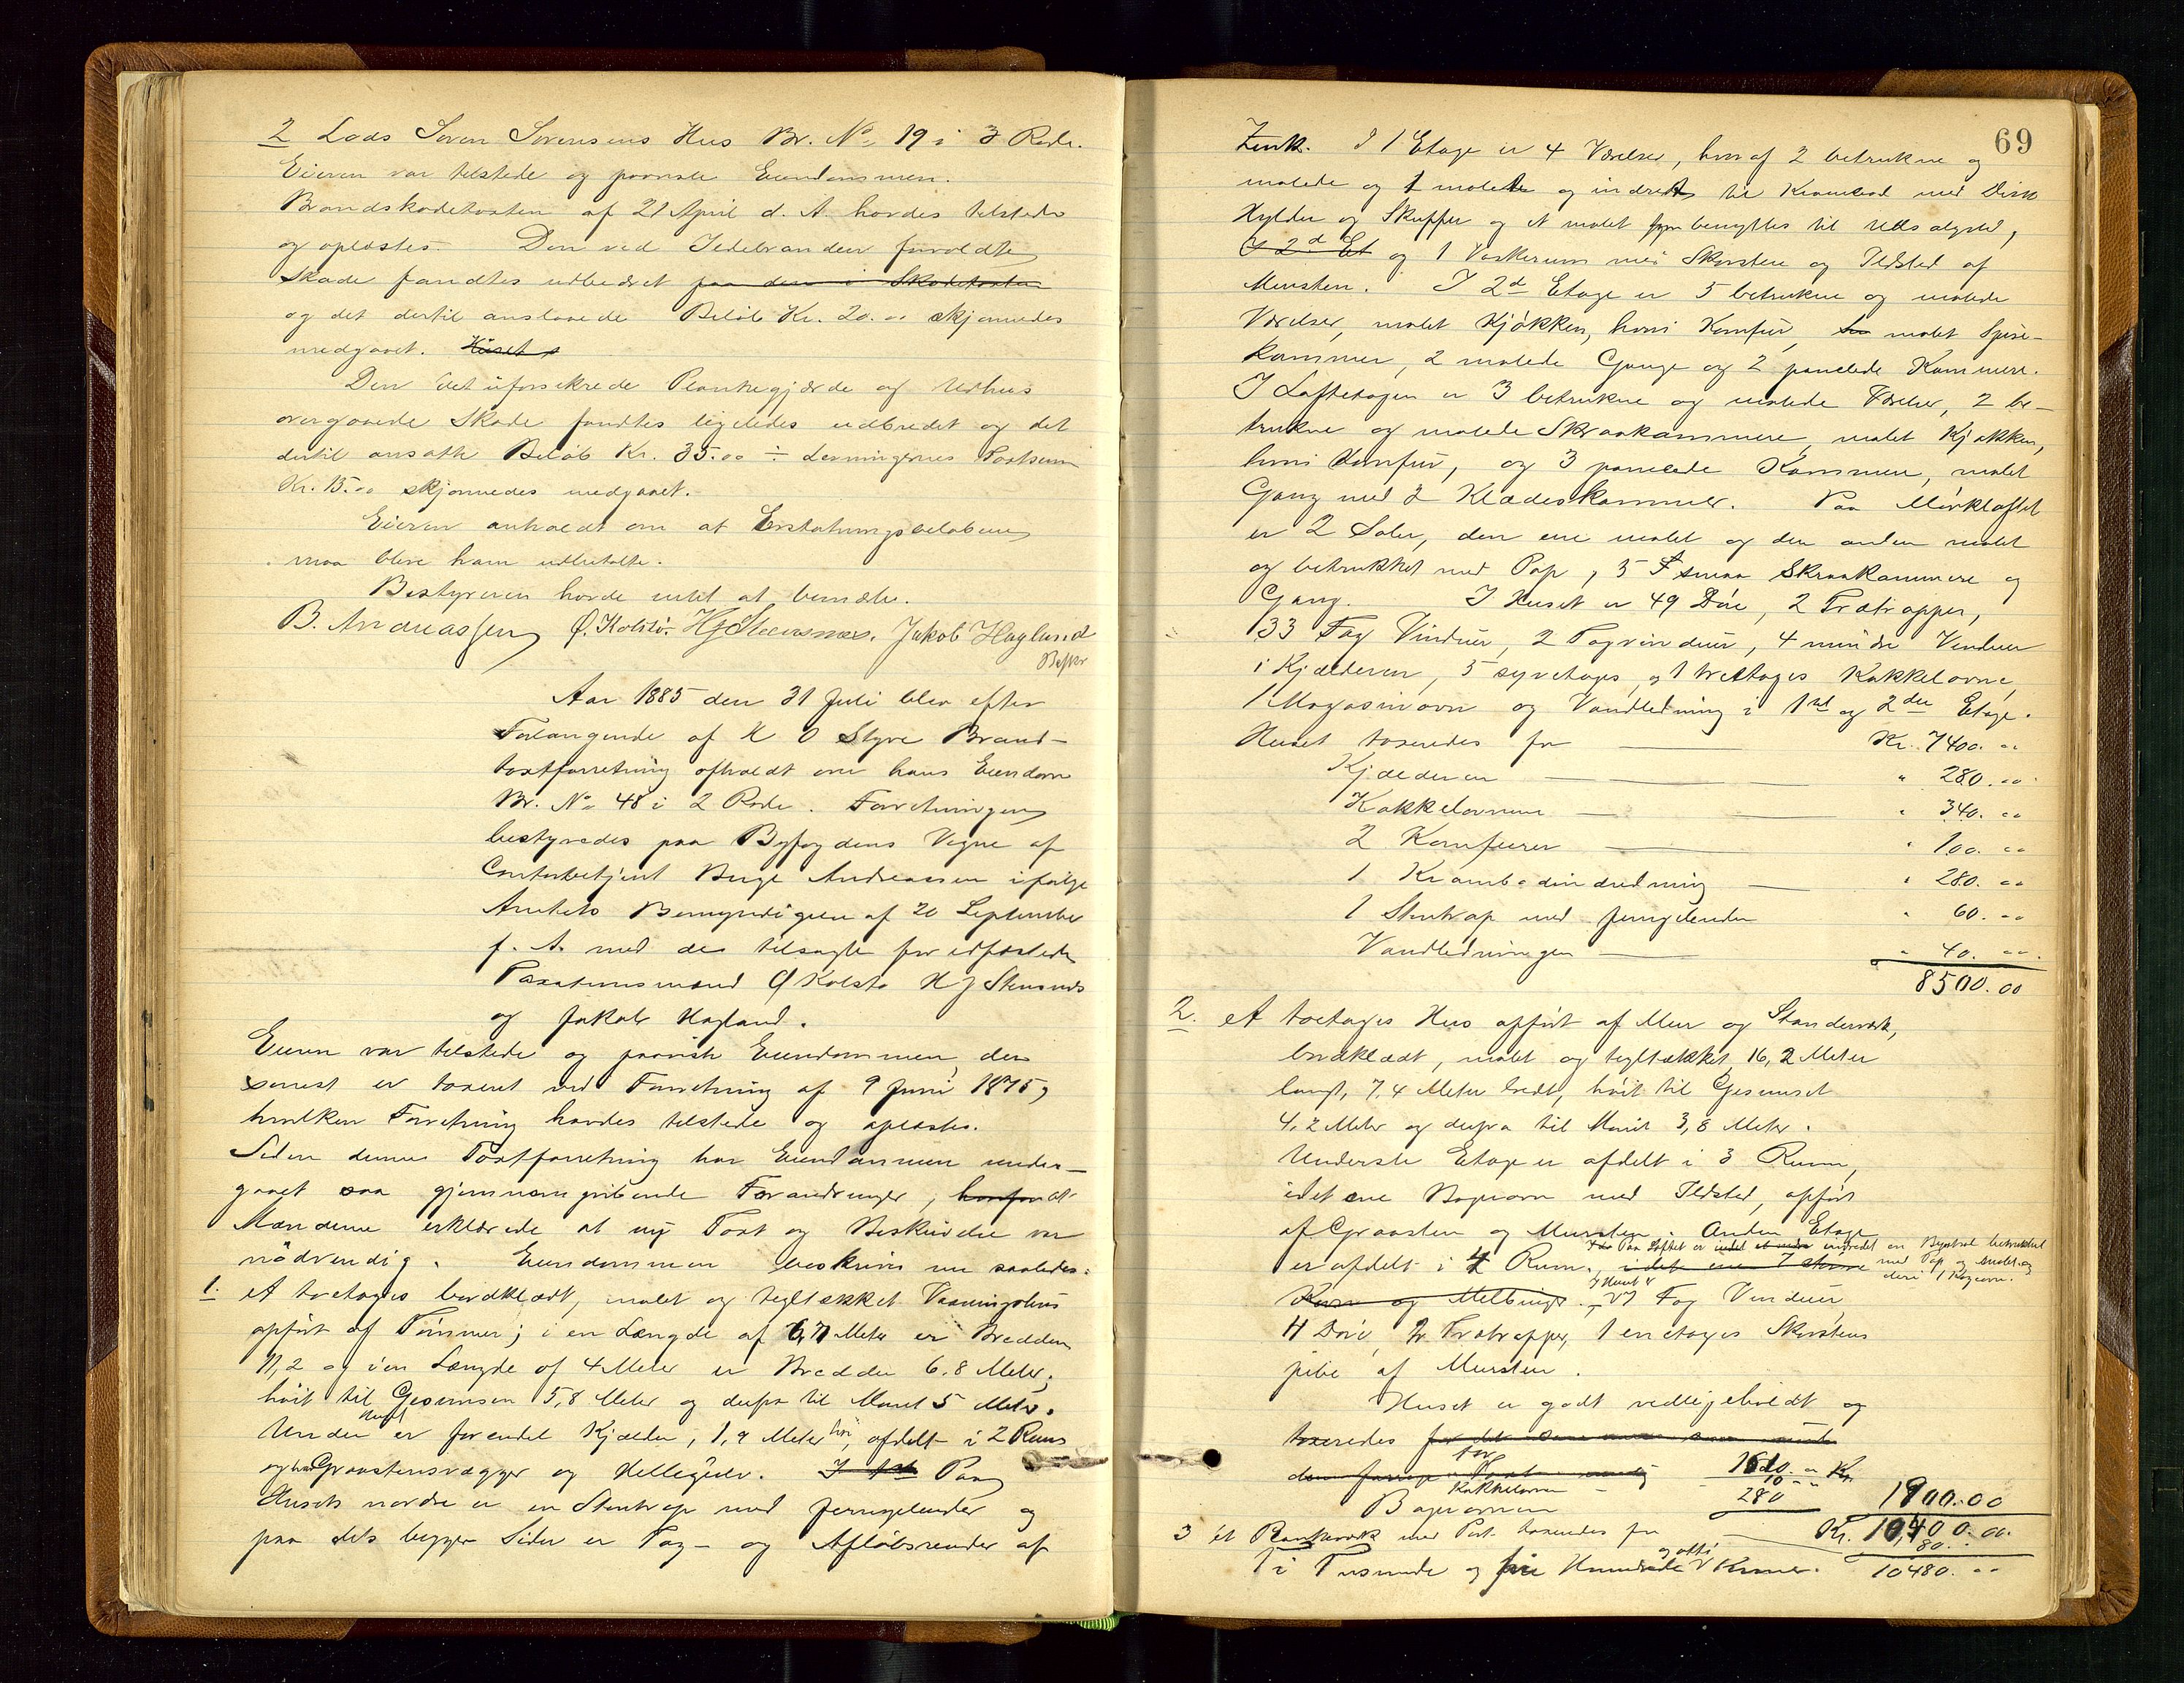 2 Lods Søren Sørensens Hus Br. No 19 i 3 Rode.
Eieren var tilstede og paaviste Eiendommen.
Brandskadetaxten af 21 April d. A. havdes tilstede
og oplæstes. Den ved Ildebranden forvoldte
Skade fandtes udbedret paa den i Skadetaxten
og det dertil anslaaede Beløb Kr. 20.00 skjønnedes
medgaaet. Huset
Den det uforsikrede Plankegjærde og Udhus
overgaaede Skade fandtes ligeledes udbedret og det
dertil ansatte Beløb Kr. 35.00 ÷ Levningernes Taxtsum
Kr. 15.00 skjønnedes medgaaet.
Eieren anholdt om at Erstatningsbeløbene
maa blive ham udbetalte.
Bestyreren havde intet at bemærke.
B. Andreassen Ø. Kolstø. HJ Stensnæs. Jakob Hagland
Aar 1885 den 31 Juli blev efter
Forlangende af K O Styve Brand-
taxtforretning afholdt over hans Eiendom
Br. No 48 i 2 Rode. Forretningen
bestyredes paa Byfogdens Vegne af
Contorbetjent Berge Andreassen ifølge
Amtets Bemyndigelse af 20 September
f. A. med de tilsagte før edfæstede
Taxationsmænd Ø Kolstø H J Stensnæs
og Jakob Hagland.
Eieren var tilstede og paaviste Eiendommen, der
senest er taxeret ved Forretning af 9 Juni 1875,
hvilken Forretning havdes tilstede og oplæstes.
Siden denne Taxtforretning har Eiendommen under-
gaaet saa gjennemgribende Forandringer, hvorfor at
Mændene erklærede at ny Taxt og Beskrivelse var
nödvendig. Eiendommen beskrives nu saaledes:
1. et toetages bordklædt, malet og teglтækket Vaaningshus
opført af Tømmer; i en Længde af 6,7 Meter er Bredden
11,2 og i en Længde af 4 Meter er Bredden 6.8 Meter,
høit til Gesimsen 5,8 Meter og derfra til Mønet 5 Meter.
Under Huset er forendel Kjælder, 1,9 Meter høi, afdelt i 2 Rum
og har Graastensvægger og Hellegulv. I 1ste Paa
Husets nordre er en Stentrap med Jerngelender og
paa dets begge Sider er Tag- og Afløbsrender af
69
Zink. I 1 Etage er 4 Værelser, hvoraf 2 betrukne og
malede og 1 malet og indredet til Krambod med Disk
Hylder og Skuffer og et malet benyttes til Udsalgsted,
I 2d Et og 1 Vaskerum med Skorsten og Ildsted af
Mursten. I 2d Etage er 5 betrukne og malede
Værelser, malet Kjøkken, hvori Komfur, malet Spise-
kammer, 2 malede Gange og 2 panelede Kammere.
I Loftetagen er 3 betrukne og malede Værelser, 2 be-
trukne og malede Skraakammere, malet Kjøkken,
hvori Komfur, og 3 panelede Kammere, malet
Gang med 2 Klædeskammer. Paa Mørkloftet
er 2 Saler, den ene malet og den anden malet
og betrukket med Pap, 5 smaa Skraakammere og
Gang. I Huset er 49 Döre, 2 Trætrapper,
33 Fag Vinduer, 2 Tagvinduer, 4 mindre Vinduer
i Kjælderen, 5 syvetages og 1 treetages Kakkelovne,
1 Magasinovn og Vandledning i 1ste og 2den Etage.
Huset taxeredes for Kr. 7400. 00
Kjælderen " 280. 00
Kakkelovnene " 340. 00
2 Komfurer " 100. 00
1 Krambodindredning " 280. 00
1 Stentrap med Jerngelender " 60. 00
Vandledningen " 40. 00.
8500.00
2. et toetages Hus opført af Mur og Standerværk,
bordklædt, malet og tegltækket 16,2 Meter
langt, 7,4 Meter bredt, høit til Gesimset
4,2 Meter og derfra til Mønet 3,8 Meter.
Underste Etage er afdelt i 3 Rum,
i det ene Bagerovn med Ildsted, opført
af Graasten og Mursten. Anden Etage
Paa Loftet er indredet en Bysal betrukket
er afdelt i 4 Rum. med Pap og malet og
deri 1 Kogeovn.
Korn og Melbinger. I Huset er Fag Vinduer
4 Döre, Trætrapper, 1 enetages Skorstens
pibe af Mursten.
Huset er godt vedligeholdt og
taxeredes
for 1610.00 Kr
Kakkelovn 10
Bagerovnen 280 1900.00
Kr. 10,400.00.
3 et Plankeværk med Port taxeredes for 80.
Ti Tusinde og fire Hundrede og otti Kroner. 10480. 00